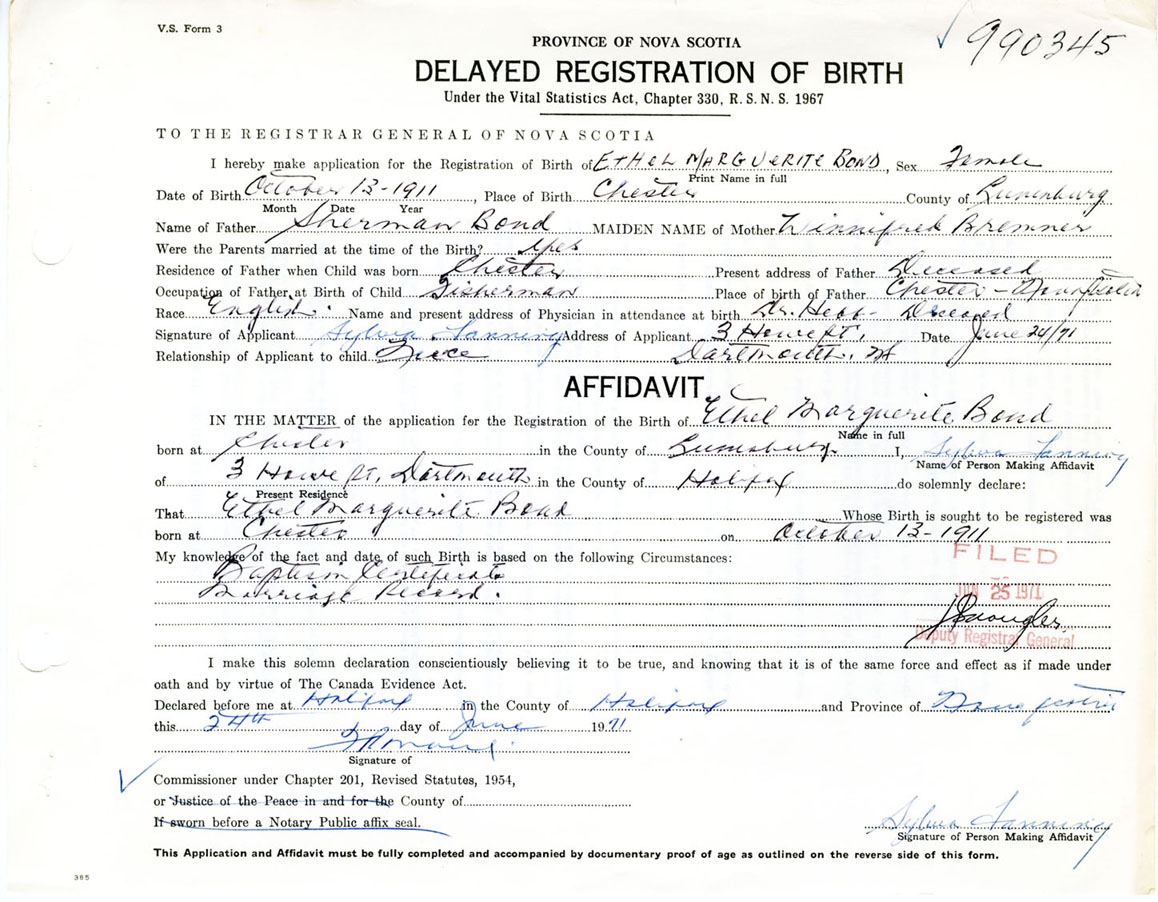 V.S. Form 3
990345
PROVINCE OF NOVA SCOTIA
DELAYED REGISTRATION OF BIRTH
Under the Vital Statistics Act, Chapter 330, R. S. N. S. 1967
TO THE REGISTRAR GENERAL OF NOVA SCOTIA
I hereby make application for the Registration of Birth of ETHEL MARGUERITE BOND, Sex Female
Print Name in full
Date of Birth October 13-1911, Place of Birth Chester County of Lunenburg
Month Date Year
Name of Father Sherman Bond MAIDEN NAME of Mother Winnifred Bremner
Were the Parents married at the time of the Birth? Yes
Residence of Father when Child was born Chester Present address of Father Deceased
Occupation of Father at Birth of Child Fisherman Place of birth of Father Chester - Nova Scotia
Race English. Name and present address of Physician in attendance at birth Dr. Hebb - Deceased
Signature of Applicant Sylvia Fanning Address of Applicant 3 Howe St, Date June 24/71
Relationship of Applicant to child Niece Dartmouth, NS
AFFIDAVIT
IN THE MATTER of the application for the Registration of the Birth of Ethel Marguerite Bond
Name in full
born at Chester in the County of Lunenburg. I, Sylvia Fanning
Name of Person Making Affidavit
of 3 Howe St, Dartmouth in the County of Halifax do solemnly declare:
Present Residence
That Ethel Marguerite Bond Whose Birth is sought to be registered was
born at Chester on October 13-1911
My knowledge of the fact and date of such Birth is based on the following Circumstances:
FILED
Baptism Certificate
Marriage Record.
JUN 25 1971
Deputy Registrar General
I make this solemn declaration conscientiously believing it to be true, and knowing that it is of the same force and effect as if made under
oath and by virtue of The Canada Evidence Act.
Declared before me at Halifax in the County of Halifax and Province of Nova Scotia
this 24th day of June 1971
Signature of
Commissioner under Chapter 201, Revised Statutes, 1954,
or Justice of the Peace in and for the County of
If sworn before a Notary Public affix seal.
Sylvia Fanning
Signature of Person Making Affidavit
This Application and Affidavit must be fully completed and accompanied by documentary proof of age as outlined on the reverse side of this form.
385